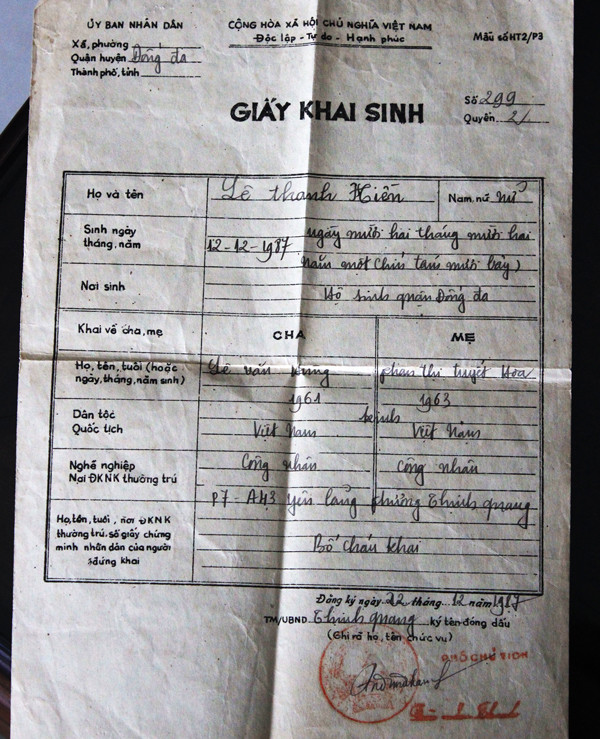 ỦY BAN NHÂN DÂN
Xã, phường
Quận huyện Đống đa
Thành phố, tỉnh
CỘNG HÒA XÃ HỘI CHỦ NGHĨA VIỆT NAM
Độc lập - Tự do - Hạnh phúc
Mẫu số HT2/P3
GIẤY KHAI SINH
Số 299
Quyển 2/
Họ và tên Lê thanh Hiền Nam, nữ nữ
Sinh ngày
tháng, năm
12-12-1987 ngày mười hai tháng mười hai
năm một chín tám mươi bảy)
Nơi sinh
Hộ sinh quận Đống đa
Khai về cha, mẹ CHA MẸ
Họ, tên, tuổi (hoặc
ngày, tháng, năm sinh)
Lê văn phan thị tuyết Hoa
1961 1963
Dân tộc kinh
Quốc tịch Việt Nam Việt Nam
Nghề nghiệp Công nhân Công nhân
Nơi ĐKNK thường trú
P7 - A43 Yên lãng phường Thịnh quang
Họ, tên, tuổi, nơi ĐKNK
thường trú, số giấy chứng
minh nhân dân của người
đứng khai
Bố cháu khai
Đăng ký ngày 22 tháng 12 năm 1987
TM/UBND Thịnh quang ký tên đóng dấu
(Ghi rõ họ, tên chức vụ)
PHÓ CHỦ TỊCH